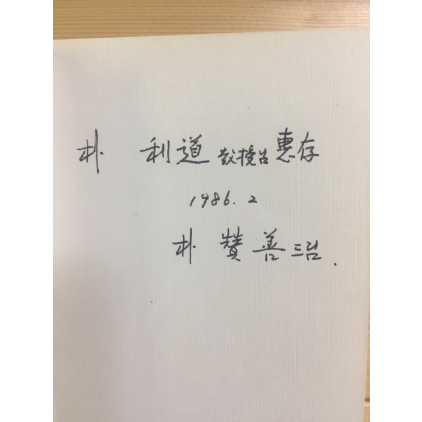 朴 利道 教授님 惠存
1986. 2
朴 贊善 드림.